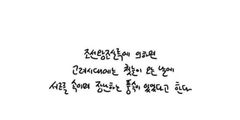 조선왕조실록에 의하면
고려시대에는 첫눈이 오는 날에
서로를 속이며 장난하는 풍속이 있었다고 한다.